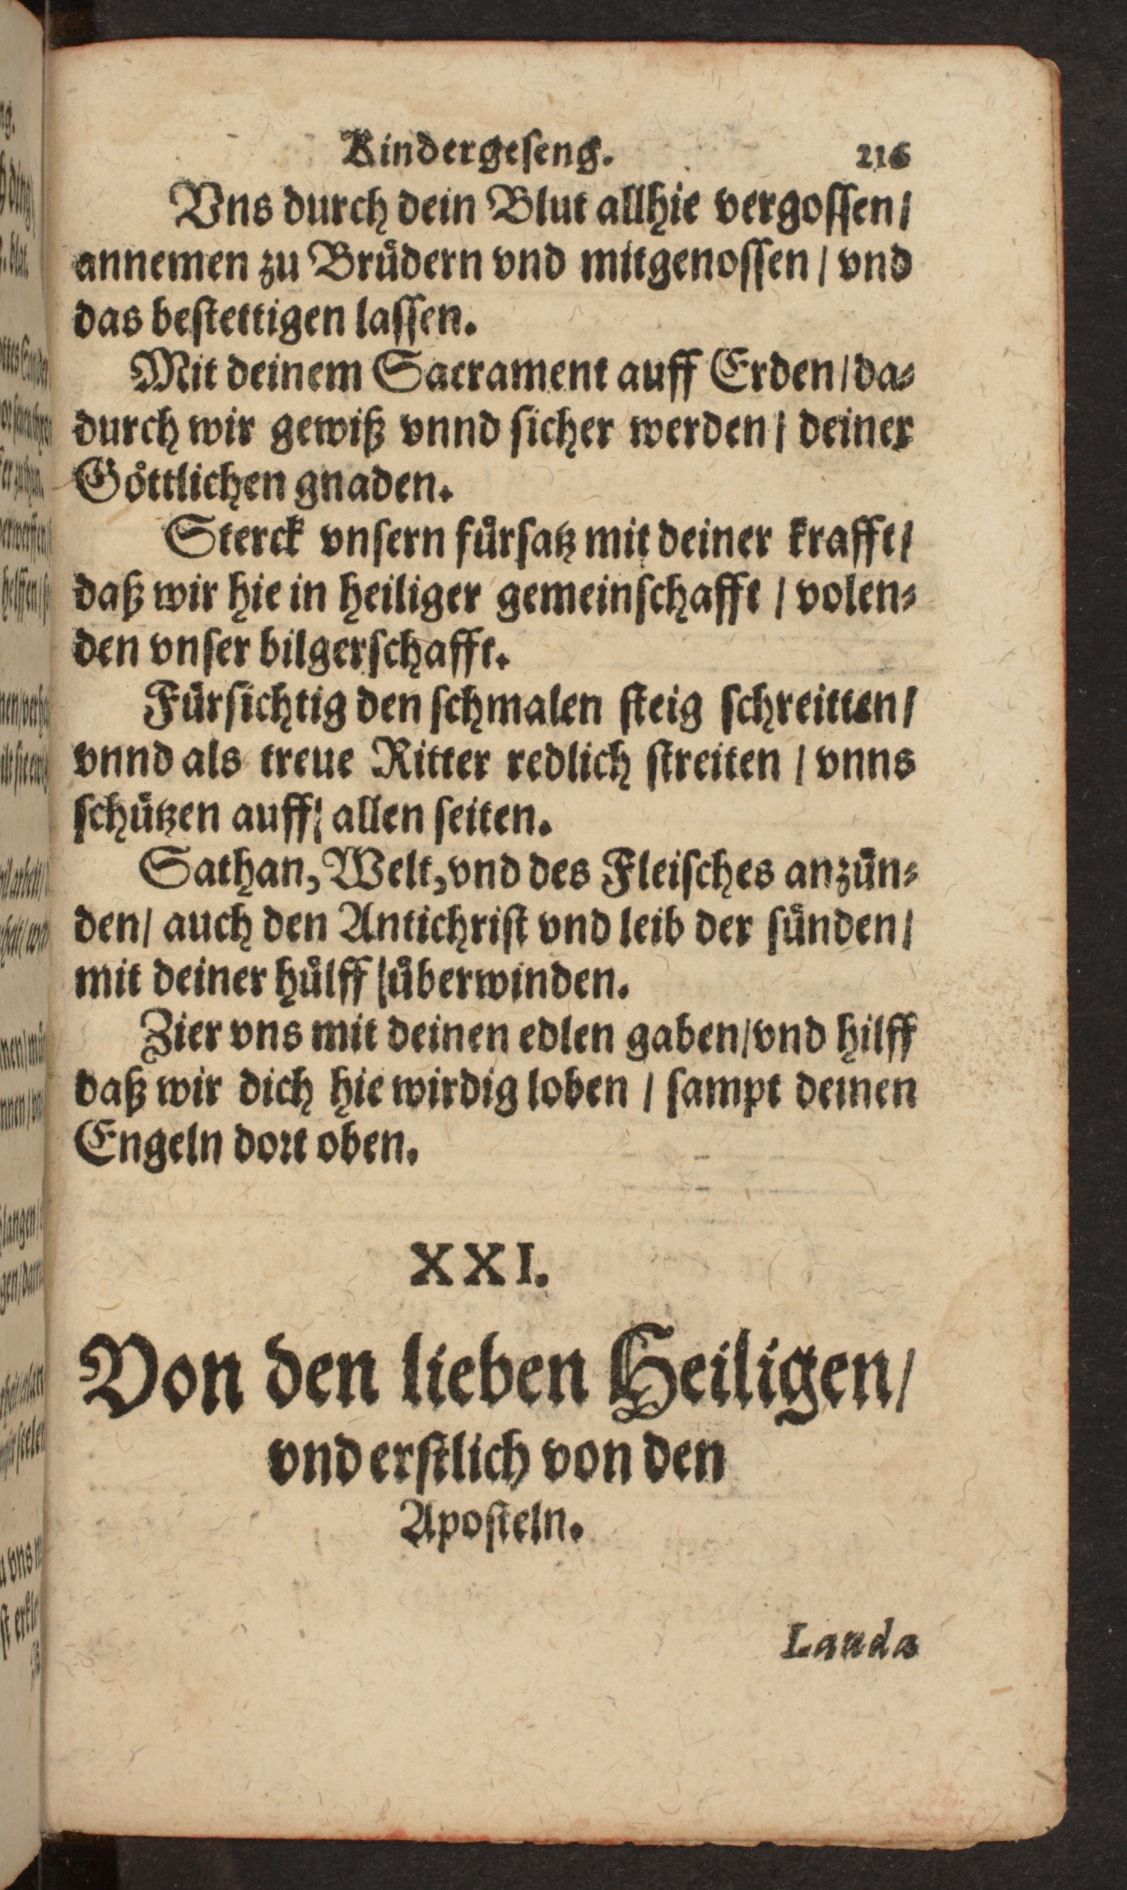 Kindergeseng. 216
Vns durch dein Blut allhie vergossen/
annemen zu Bruͤdern vnd mitgenossen / vnd
das bestettigen lassen.
Mit deinem Sacrament auff Erden/da-
durch wir gewiß vnnd sicher werden / deiner
Goͤttlichen gnaden.
Sterck vnsern fuͤrsatz mit deiner krafft/
daß wir hie in heiliger gemeinschafft / volen-
den vnser bilgerschafft.
Fuͤrsichtig den schmalen steig schreitten/
vnnd als treue Ritter redlich streiten / vnns
schuͤtzen auff/ allen seiten.
Sathan, Welt, vnd des Fleisches anzuͤn-
den/ auch den Antichrist vnd leib der suͤnden/
mit deiner huͤlff /uͤberwinden.
Zier vns mit deinen edlen gaben/vnd hilff
daß wir dich hie wirdig loben / sampt deinen
Engeln dort oben.
XXI.
Von den lieben Heiligen/
vnd erstlich von den
Aposteln.
Lauda